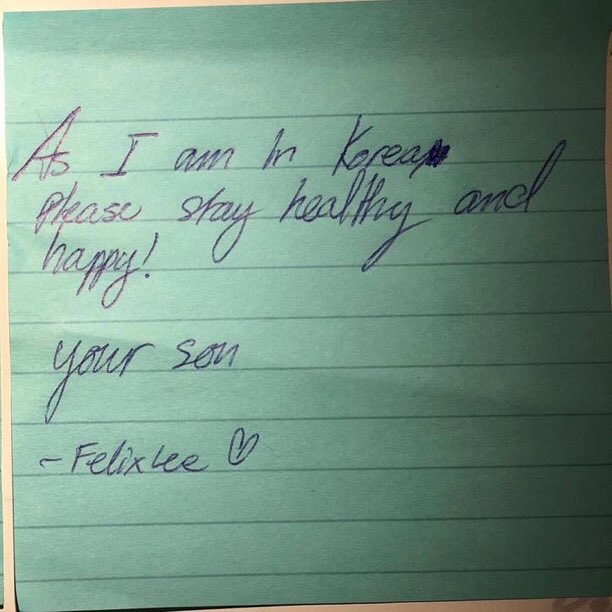 As I am in Korea
please stay healthy and
happy!
your son
- Felix Lee ♡